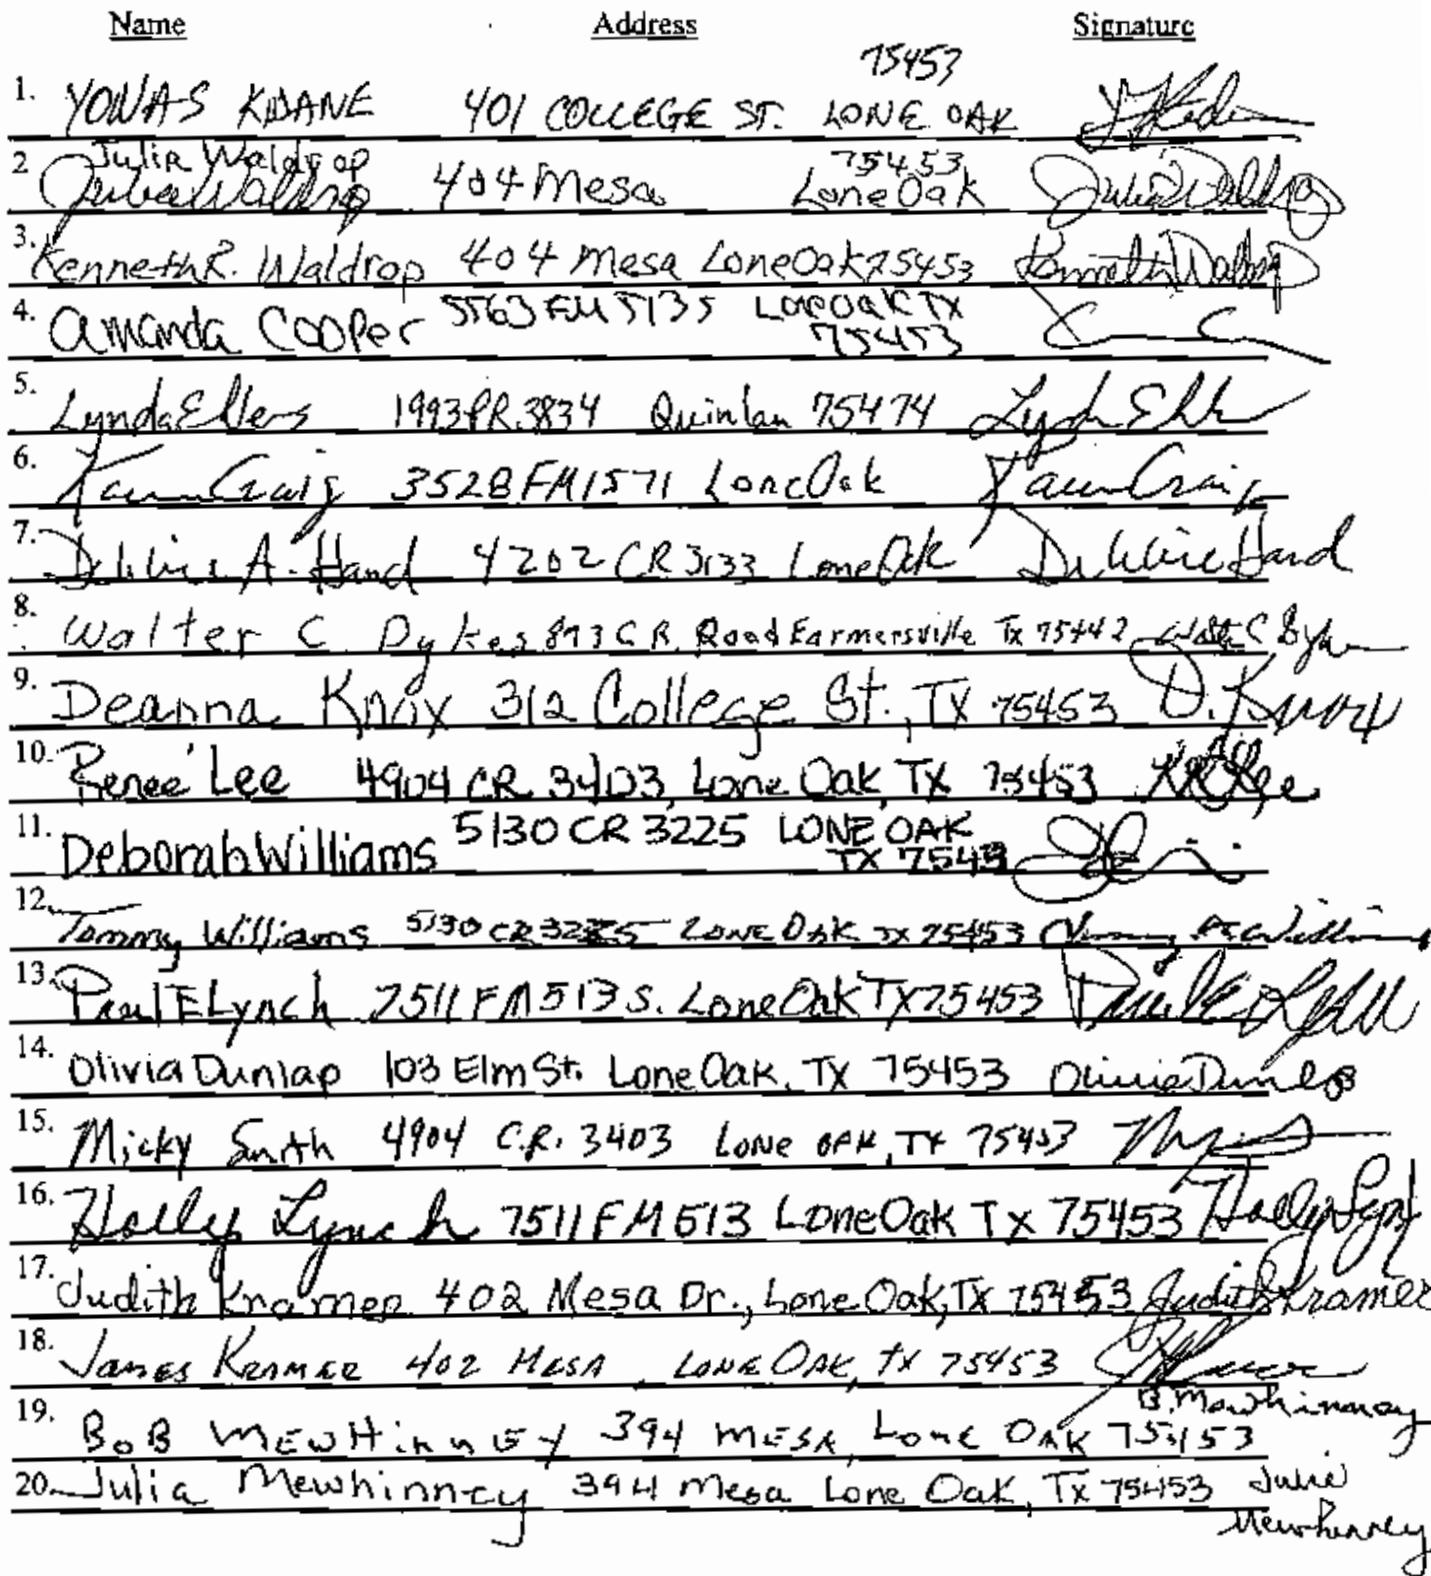 Name Address Signature
75453
1. YONAS KIDANE 401 COLLEGE ST. LONE OAK
Julia Waldrop 75453
2 Julia Waldrop 404 Mesa Lone Oak Julia Waldrop
3. Kenneth R. Waldrop 404 Mesa Lone Oak 75453 Kenneth Waldrop
4. Amanda Cooper 5563 FM 5135 Lone Oak TX
75453
5. Lynda Ellers 1993 PR 3834 Quinlan 75474
6. Karen Craig 3528 FM 1571 Lone Oak Karen Craig
7. Debbie A. Hand 4202 CR 3133 Lone Oak Debbie Hand
8. Walter C Dykes 873 C R. Road Farmersville Tx 75442 Walter C Dykes
9. Deanna Knox 312 College St., TX 75453 D. Knox
10. Renee' Lee 4904 CR 3403, Lone Oak, TX 75453
11. Deborah Williams 5130 CR 3225 LONE OAK
TX 7545
12. Tommy Williams 5130 CR 3225 LONE OAK TX 75453
13. Paul E Lynch 7511 FM 513 S. Lone Oak TX 75453
14. Olivia Dunlap 103 Elm St. Lone Oak, TX 75453 Olivia Dunlap
15. Micky Smith 4904 C.R. 3403 LONE OAK, TX 75453
16. Holly Lynch 7511 FM 513 Lone Oak Tx 75453 Holly Lynch
17. Judith Kramer 402 Mesa Dr., Lone Oak, TX 75453 Judith Kramer
18. JAMES KRAMER 402 MESA, LONE OAK, TX 75453
B. Mewhinney
19. BOB MEWHINNEY 394 MESA Lone OAK 75453
20. Julia Mewhinney 394 Mesa Lone Oak, Tx 75453 Julie
Mewhinney